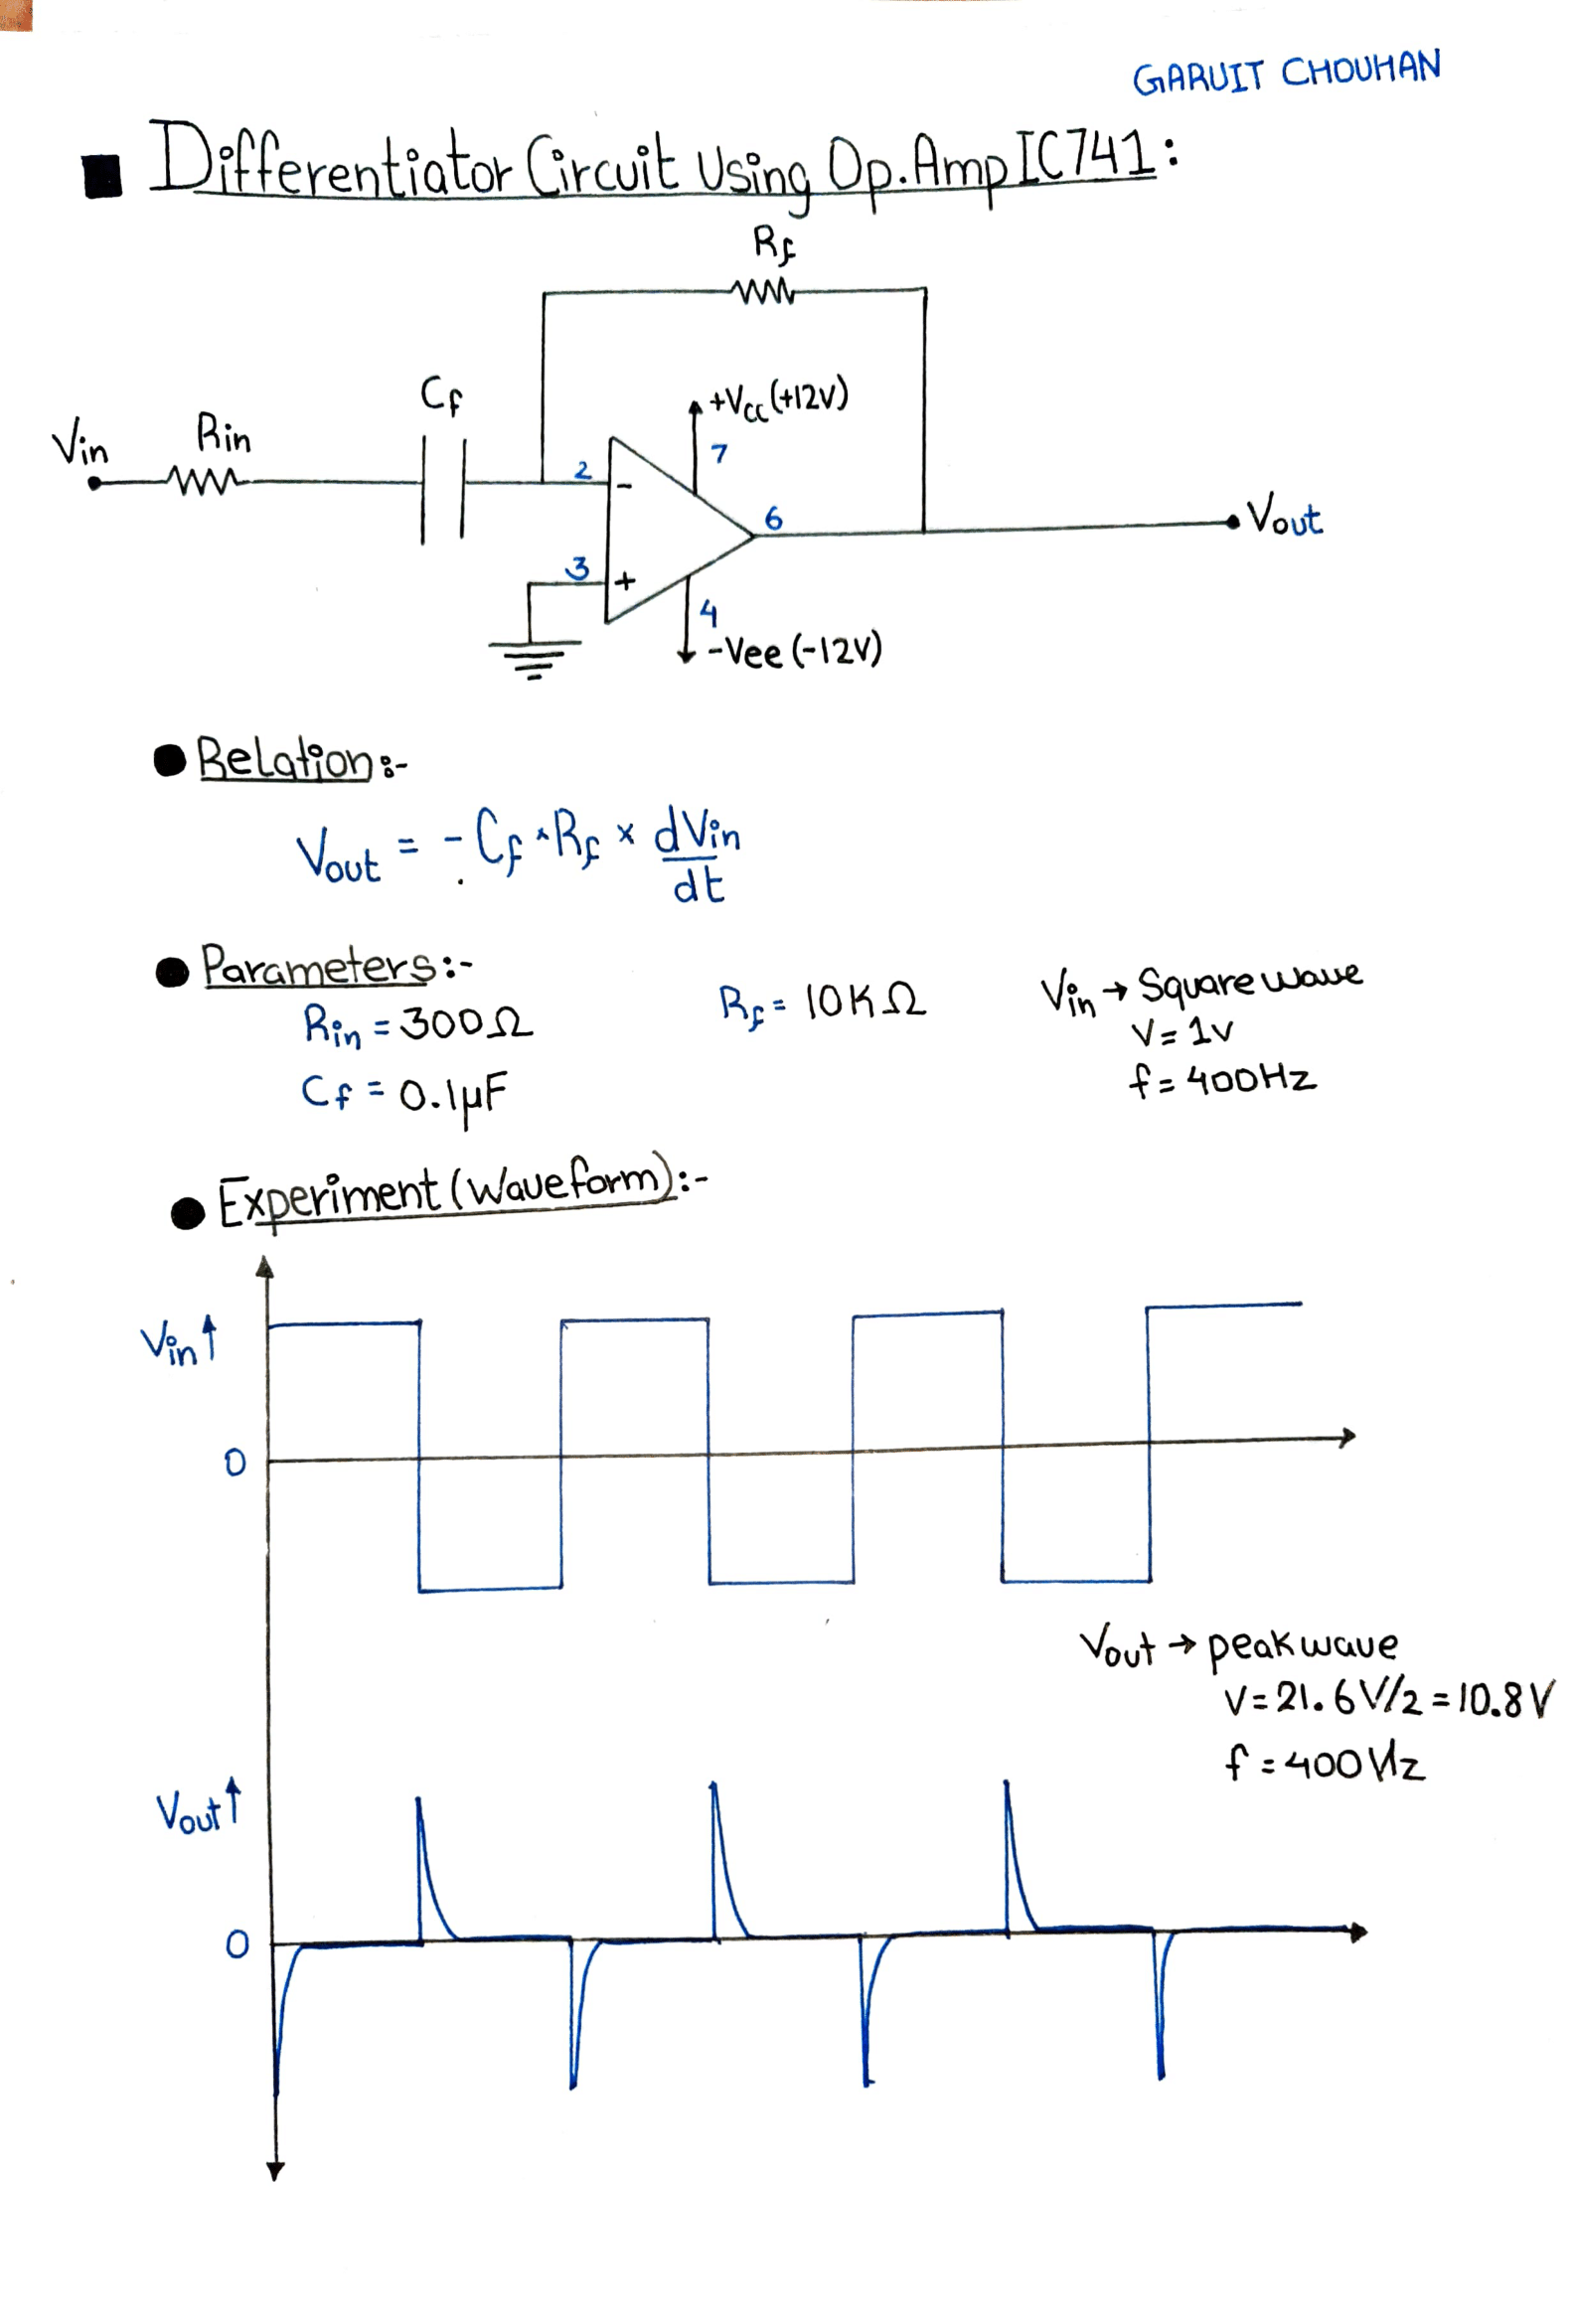 GARUIT CHOUHAN
Differentiator Circuit Using Op.Amp IC741:
Rf
Cf
+Vcc (+12V)
Rin
7
Vin
2
-
6
Vout
3
+
4
-Vee (-12V)
Relation:-
Vout = - Cf × Rf × dVin/dt
Parameters:-
Rin = 300Ω
Rf = 10KΩ
Vin → Square wave
V = 1v
Cf = 0.1µF
f = 400Hz
Experiment (Waveform):-
Vin↑
0
Vout → peak wave
V = 21.6V/2 = 10.8V
f = 400Hz
Vout↑
0